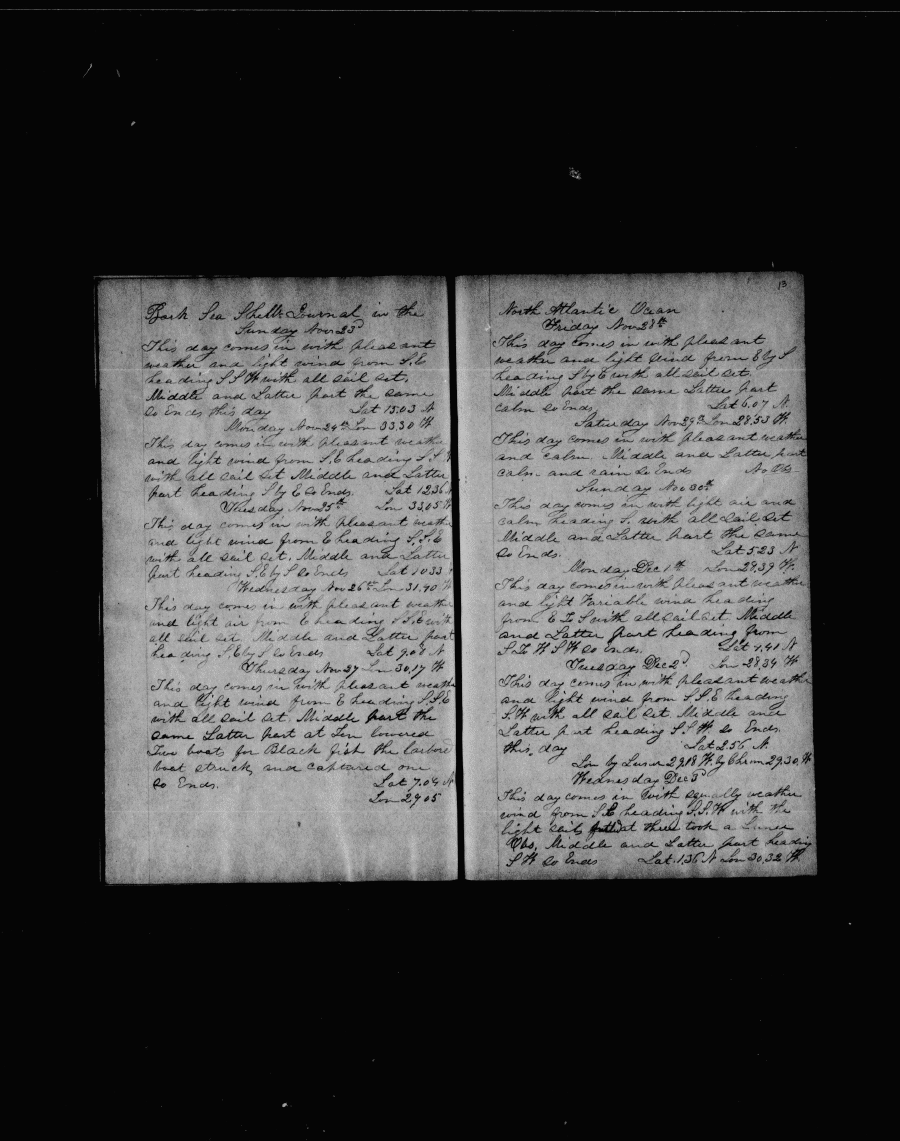 Bark Sea Shell Journal in the
Sunday Nov 23d
This day comes in with pleasant
weather and light wind from S.E
heading S S W with all sail set.
Middle and Latter part the same
So Ends this day Lat 15.03 N
Monday Nov 24th Lon 33.30 W
This day comes in with pleasant weather
and light wind from S.E heading S.S W
with all sail set Middle and Latter
part heading S by E So Ends. Lat 12.36 N
Tuesday Nov 25th Lon 33.05 W
This day comes in with pleasant weathe
and light wind from E heading S.S.E
with all sail set. Middle and Latter
part heading S.E by S So Ends Lat 10 33
Wednesday Nov 26th Lon 31.40 W
This day comes in with pleasant weather
and light air from E heading S S.E with
all sail set Middle and Latter part
heading S.E by S So Ends Lat 9.08 N
Thursday Nov 27 Lon 30.17 W
This day comes in with pleasant weathe
and light wind from E heading S.S.E
with all sail set. Middle part the
same Latter part at Ten lowered
Two boat for Black fish the larbord
boat struck and captured one
So Ends. Lat 7.04 N
Lon 29 05
13
North Atlantic Ocean
Friday Nov 28th
This day comes in with pleasant
weather and light wind from E by S
heading S by E with all sail set.
Middle part the same Latter part
calm So Ends Lat 6.07 N
Saturday Nov 29th Lon 28.53 W.
This day comes in with pleasant weather
and calm. Middle and Latter part
calm and rain So Ends No Obs
Sunday Nov 30th
This day comes in with light air and
calm heading S. with all sail set
Middle and Latter part the same
So Ends. Lat 5 23 N
Monday Dec 1th Lon 28.39 W.
This day comes in with pleasant weather
and light Variable wind heading
from E To S with all sail set Middle
and Latter part heading from
S To W S W So Ends. Lat 4.41 N
Tuesday Dec 2d Lon 28.34 W
This day comes in with pleasant weather
and light wind from S.S.E heading
S.W with all sail set. Middle and
Latter part heading S.S W. So Ends
this day Lat 2.56 N.
Lon by Luner 29.18 W. by Chrom 29.30 W
Wednesday Dec 3d
This day comes in with squally weather
wind from S.E heading S.S.W with the
light sails at three took a Luner
Obs. Middle and Latter part heading
S W So Ends Lat 1.36 N Lon 30.32 W